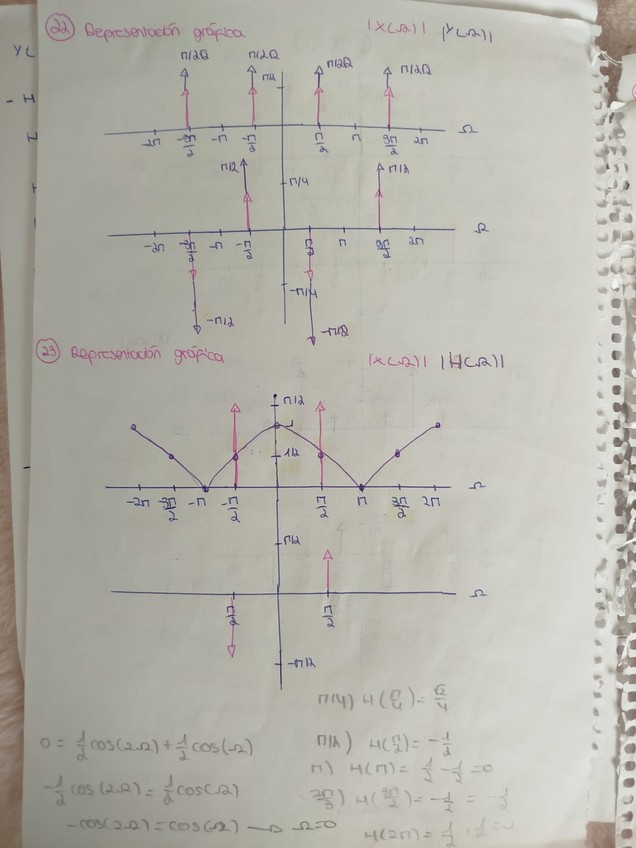 22 Representación gráfica |X(Ω)| |Y(Ω)|
π/2Ω π/2Ω π/4 π/2Ω π/2Ω
-2π -3π/2 -π -π/2 π/2 π 3π/2 2π Ω
π/2 π/4 π/2
-2π -3π/2 -π -π/2 π/2 π 3π/2 2π Ω
-π/2 -π/4 -π/2
23 Representación gráfica |X(Ω)| |H(Ω)|
π/2
1
1/2
-2π -3π/2 -π -π/2 π/2 π 3π/2 2π Ω
π/2
-π/2 π/2 Ω
-π/2
π/4) H(π/4) = √2/4
0 = 1/2 cos(2Ω) + 1/2 cos(Ω) π/2) H(π/2) = -1/2
π) H(π) = 1/2 - 1/2 = 0
-1/2 cos(2Ω) = 1/2 cos(Ω) H(3π/2) = -1/2 = -1/2
-cos(2Ω) = cos(Ω) → Ω=0 H(2π) = 1/2 + 1/2